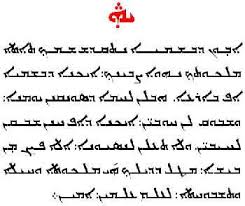 ܐܒܘܢ ܕܒܫܡܝܐ ܢܬܩܕܫ ܫܡܟ ܬܐܬܐ
ܡܠܟܘܬܟ ܢܗܘܐ ܨܒܝܢܟ: ܐܝܟܢܐ ܕܒܫܡܝܐ
ܐܦ ܒܐܪܥܐ. ܗܒܠܢ ܠܚܡܐ ܕܣܘܢܩܢܢ ܝܘܡܢܐ:
ܘܫܒܘܩ ܠܢ ܚܘܒܝܢ: ܐܝܟܢܐ ܕܐܦ ܚܢܢ ܫܒܩܢ
ܠܚܝܒܝܢ: ܘܠܐ ܬܥܠܢ ܠܢܣܝܘܢܐ: ܐܠܐ ܦܨܢ ܡܢ
ܒܝܫܐ: ܡܛܠ ܕܕܝܠܟ ܗܝ ܡܠܟܘܬܐ ܘܚܝܠܐ
ܘܬܫܒܘܚܬܐ: ܠܥܠܡ ܥܠܡܝܢ: ܐܡܝܢ܀